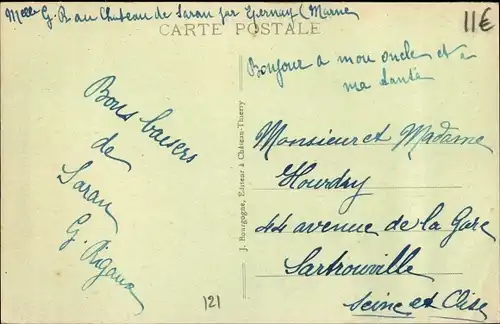 Melle G. R au Chateau de Saran par Epernay (Marne
11€
CARTE POSTALE
Bonjour a mon oncle et a
ma tante
Bons baisers
de
Saran
G. Rigaux
J. Bourgogne, Editeur à Château-Thierry
Monsieur et Madame
Hourdry
44 avenue de la Gare
Sartrouville
Seine et Oise
121